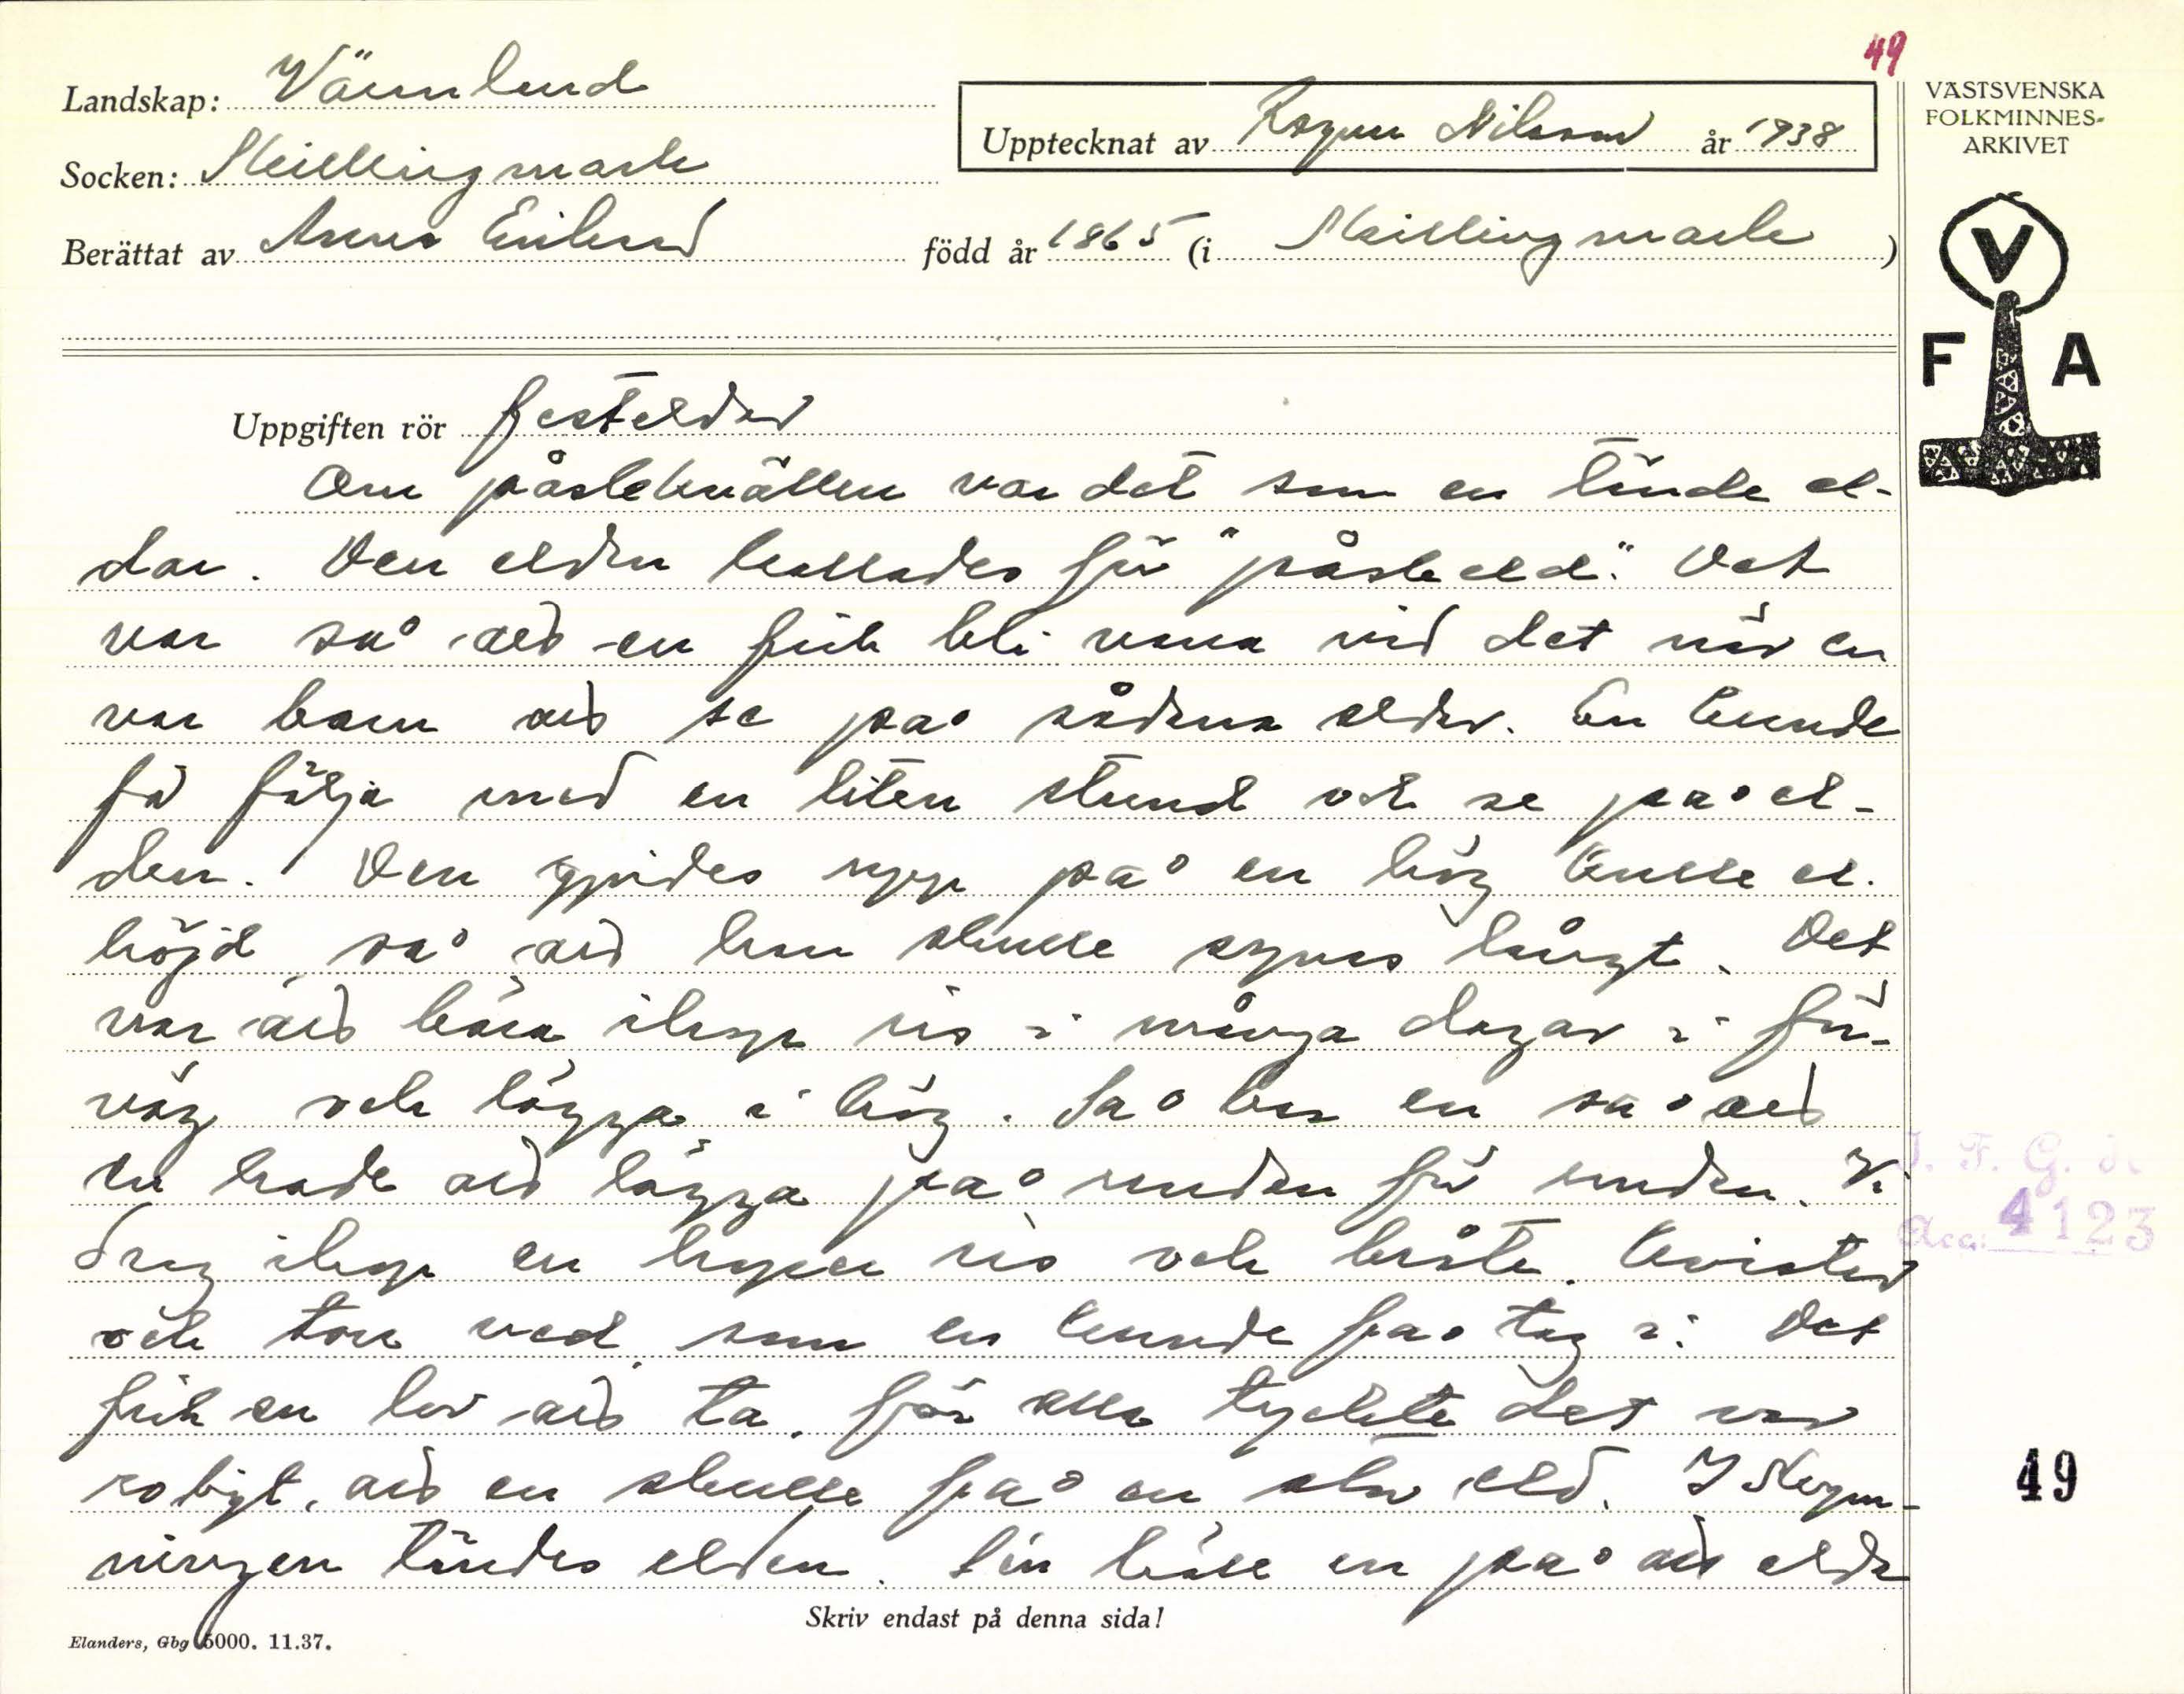 49
Landskap: Värmland
Upptecknat av Ragnar Nilsson år 1938
VÄSTSVENSKA
FOLKMINNES-
ARKIVET
Socken: Skillingmark
Berättat av Anna Eriksson född år 1865 (i Skillingmark)
V
F A
Uppgiften rör festeldar
Om påskkvällen var det som en tände el-
dar. Den elden kallades för "påskeld". Det
var så att en fick bli vana vid det när en
var barn att se på sådana eldar. En kunde
få följa med en liten stund och se på el-
den. Den gjordes upp på en hög kulle el.
höjd, så att han skulle synas långt. Det
var att bära ihop ris i många dagar i för-
väg och lägga i hög. Sa en så att
en hade att lägga på undan för undan. Vi
drog ihop en hoper ris och bråte. Kvistar
och torr ved, som en kunde få tag i. Det
fick en lov att ta, för alla tyckte det var
roligt, att en skulle få en stor eld. I skym-
ningen tändes elden. Sen höll en på att elda
J. F. G. s.
Acc: 4123
49
Skriv endast på denna sida!
Elanders, Gbg 5000. 11.37.